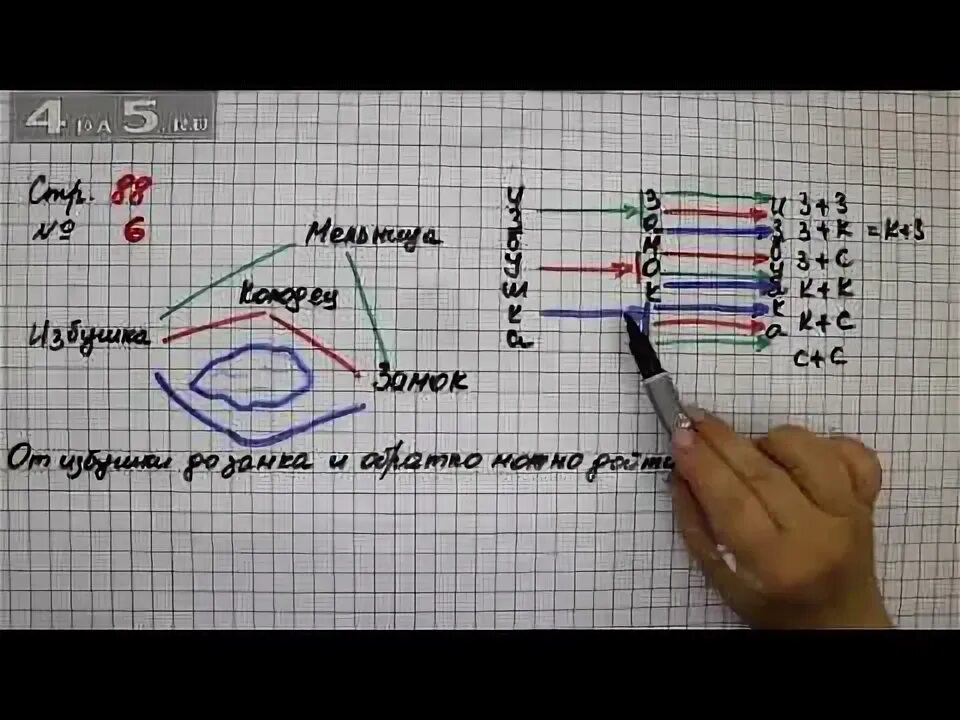 4 года 5.ru
Стр. 88
№ 6
Мельница
Колодец
Избушка
Замок
От избушки до замка и обратно можно дойти
избушка
Замок
избушка
З+З
З+К = К+З
З+С
К+К
К+С
С+С